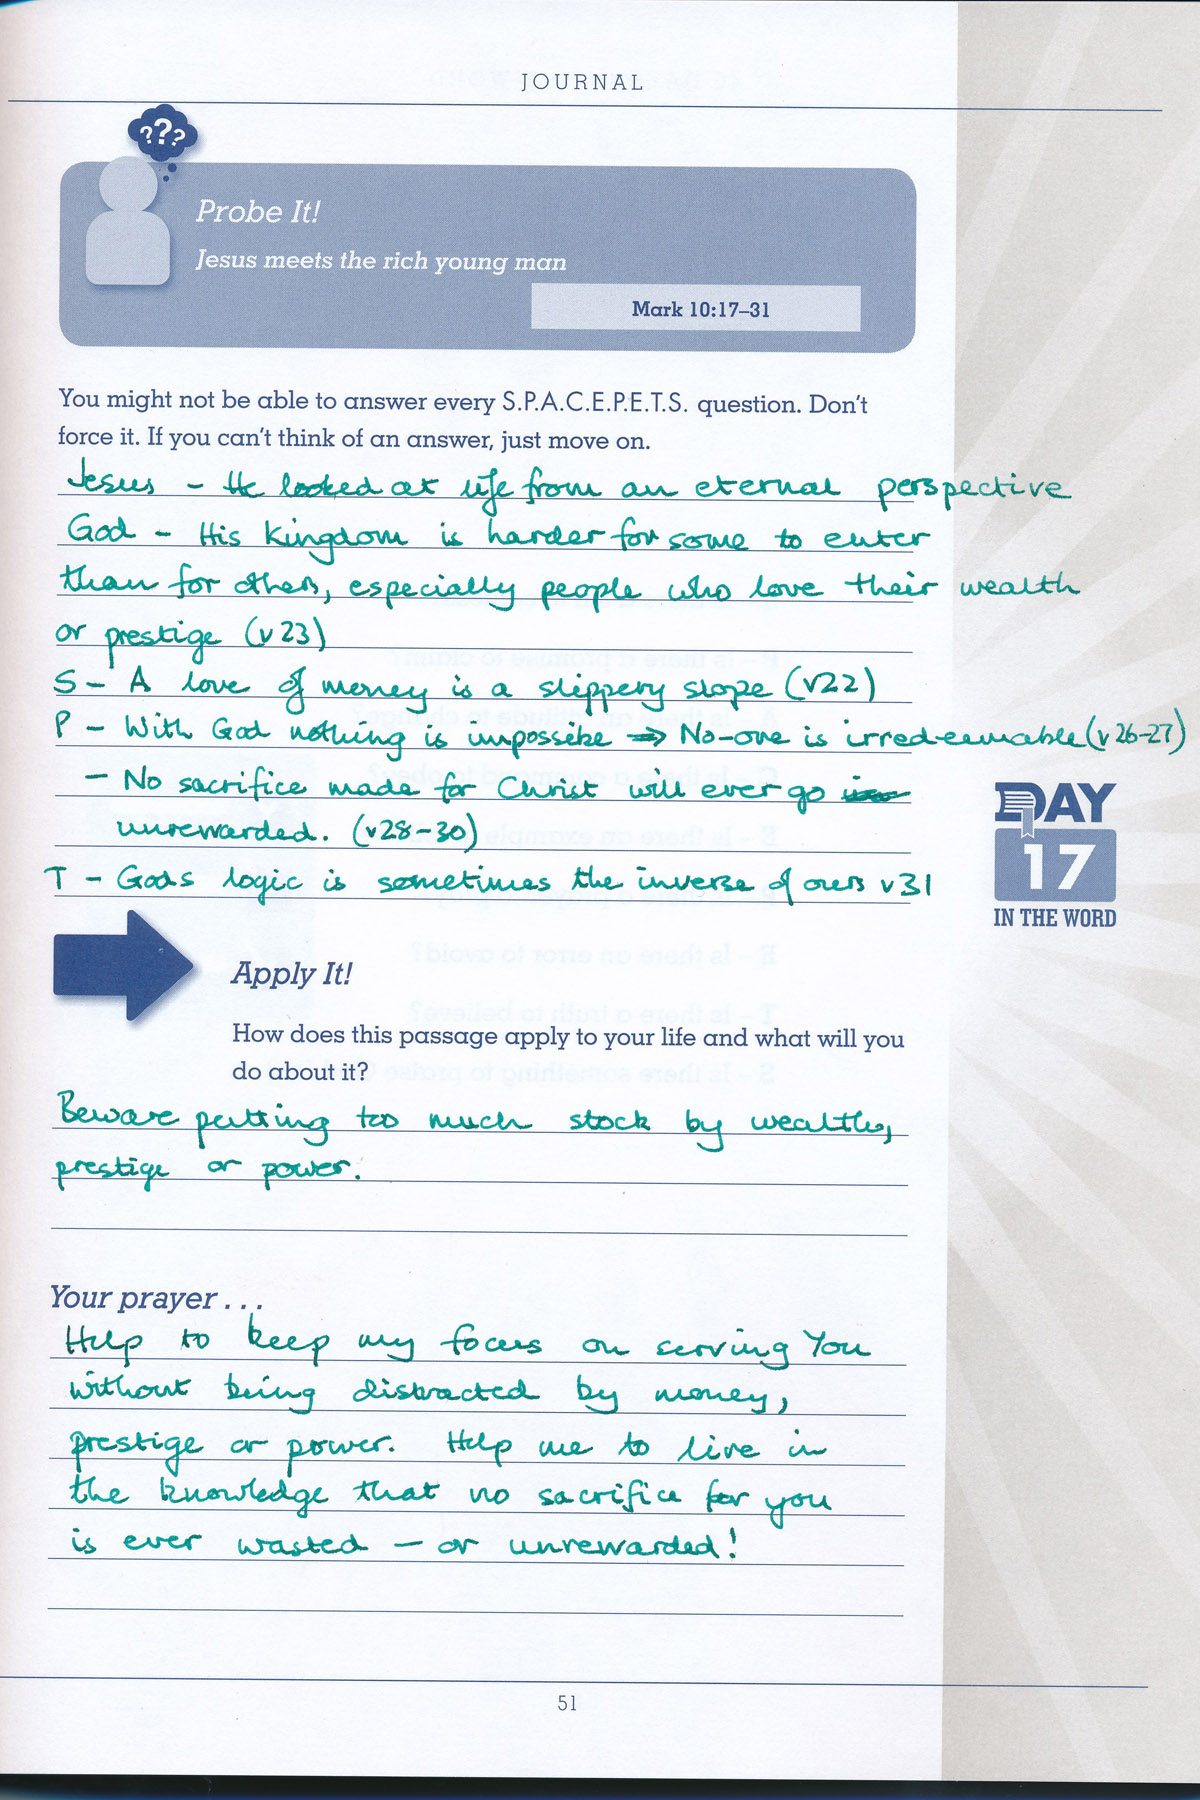 JOURNAL
???
Probe It!
Jesus meets the rich young man
Mark 10:17–31
You might not be able to answer every S.P.A.C.E.P.E.T.S. question. Don't
force it. If you can't think of an answer, just move on.
Jesus – He looked at life from an eternal perspective
God – His kingdom is harder for some to enter
than for others, especially people who love their wealth
or prestige (v23)
S – A love of money is a slippery slope (v22)
P – With God nothing is impossible → No-one is irredeemable (v26–27)
– No sacrifice made for Christ will ever go
unrewarded. (v28–30)
T – Gods logic is sometimes the inverse of ours v31
DAY
17
IN THE WORD
Apply It!
How does this passage apply to your life and what will you
do about it?
Beware putting too much stock by wealth,
prestige or power.
Your prayer . . .
Help to keep my focus on serving You
without being distracted by money,
prestige or power. Help me to live in
the knowledge that no sacrifice for you
is ever wasted – or unrewarded!
51